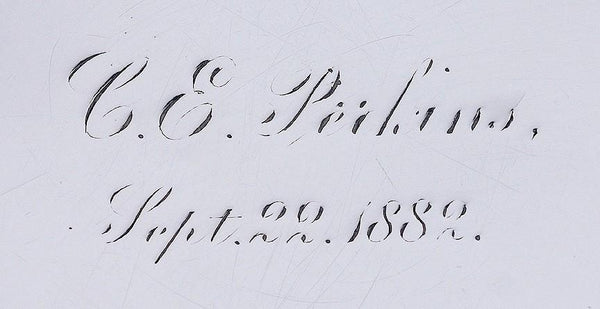 C. E. Perkins,
Sept. 22. 1882.